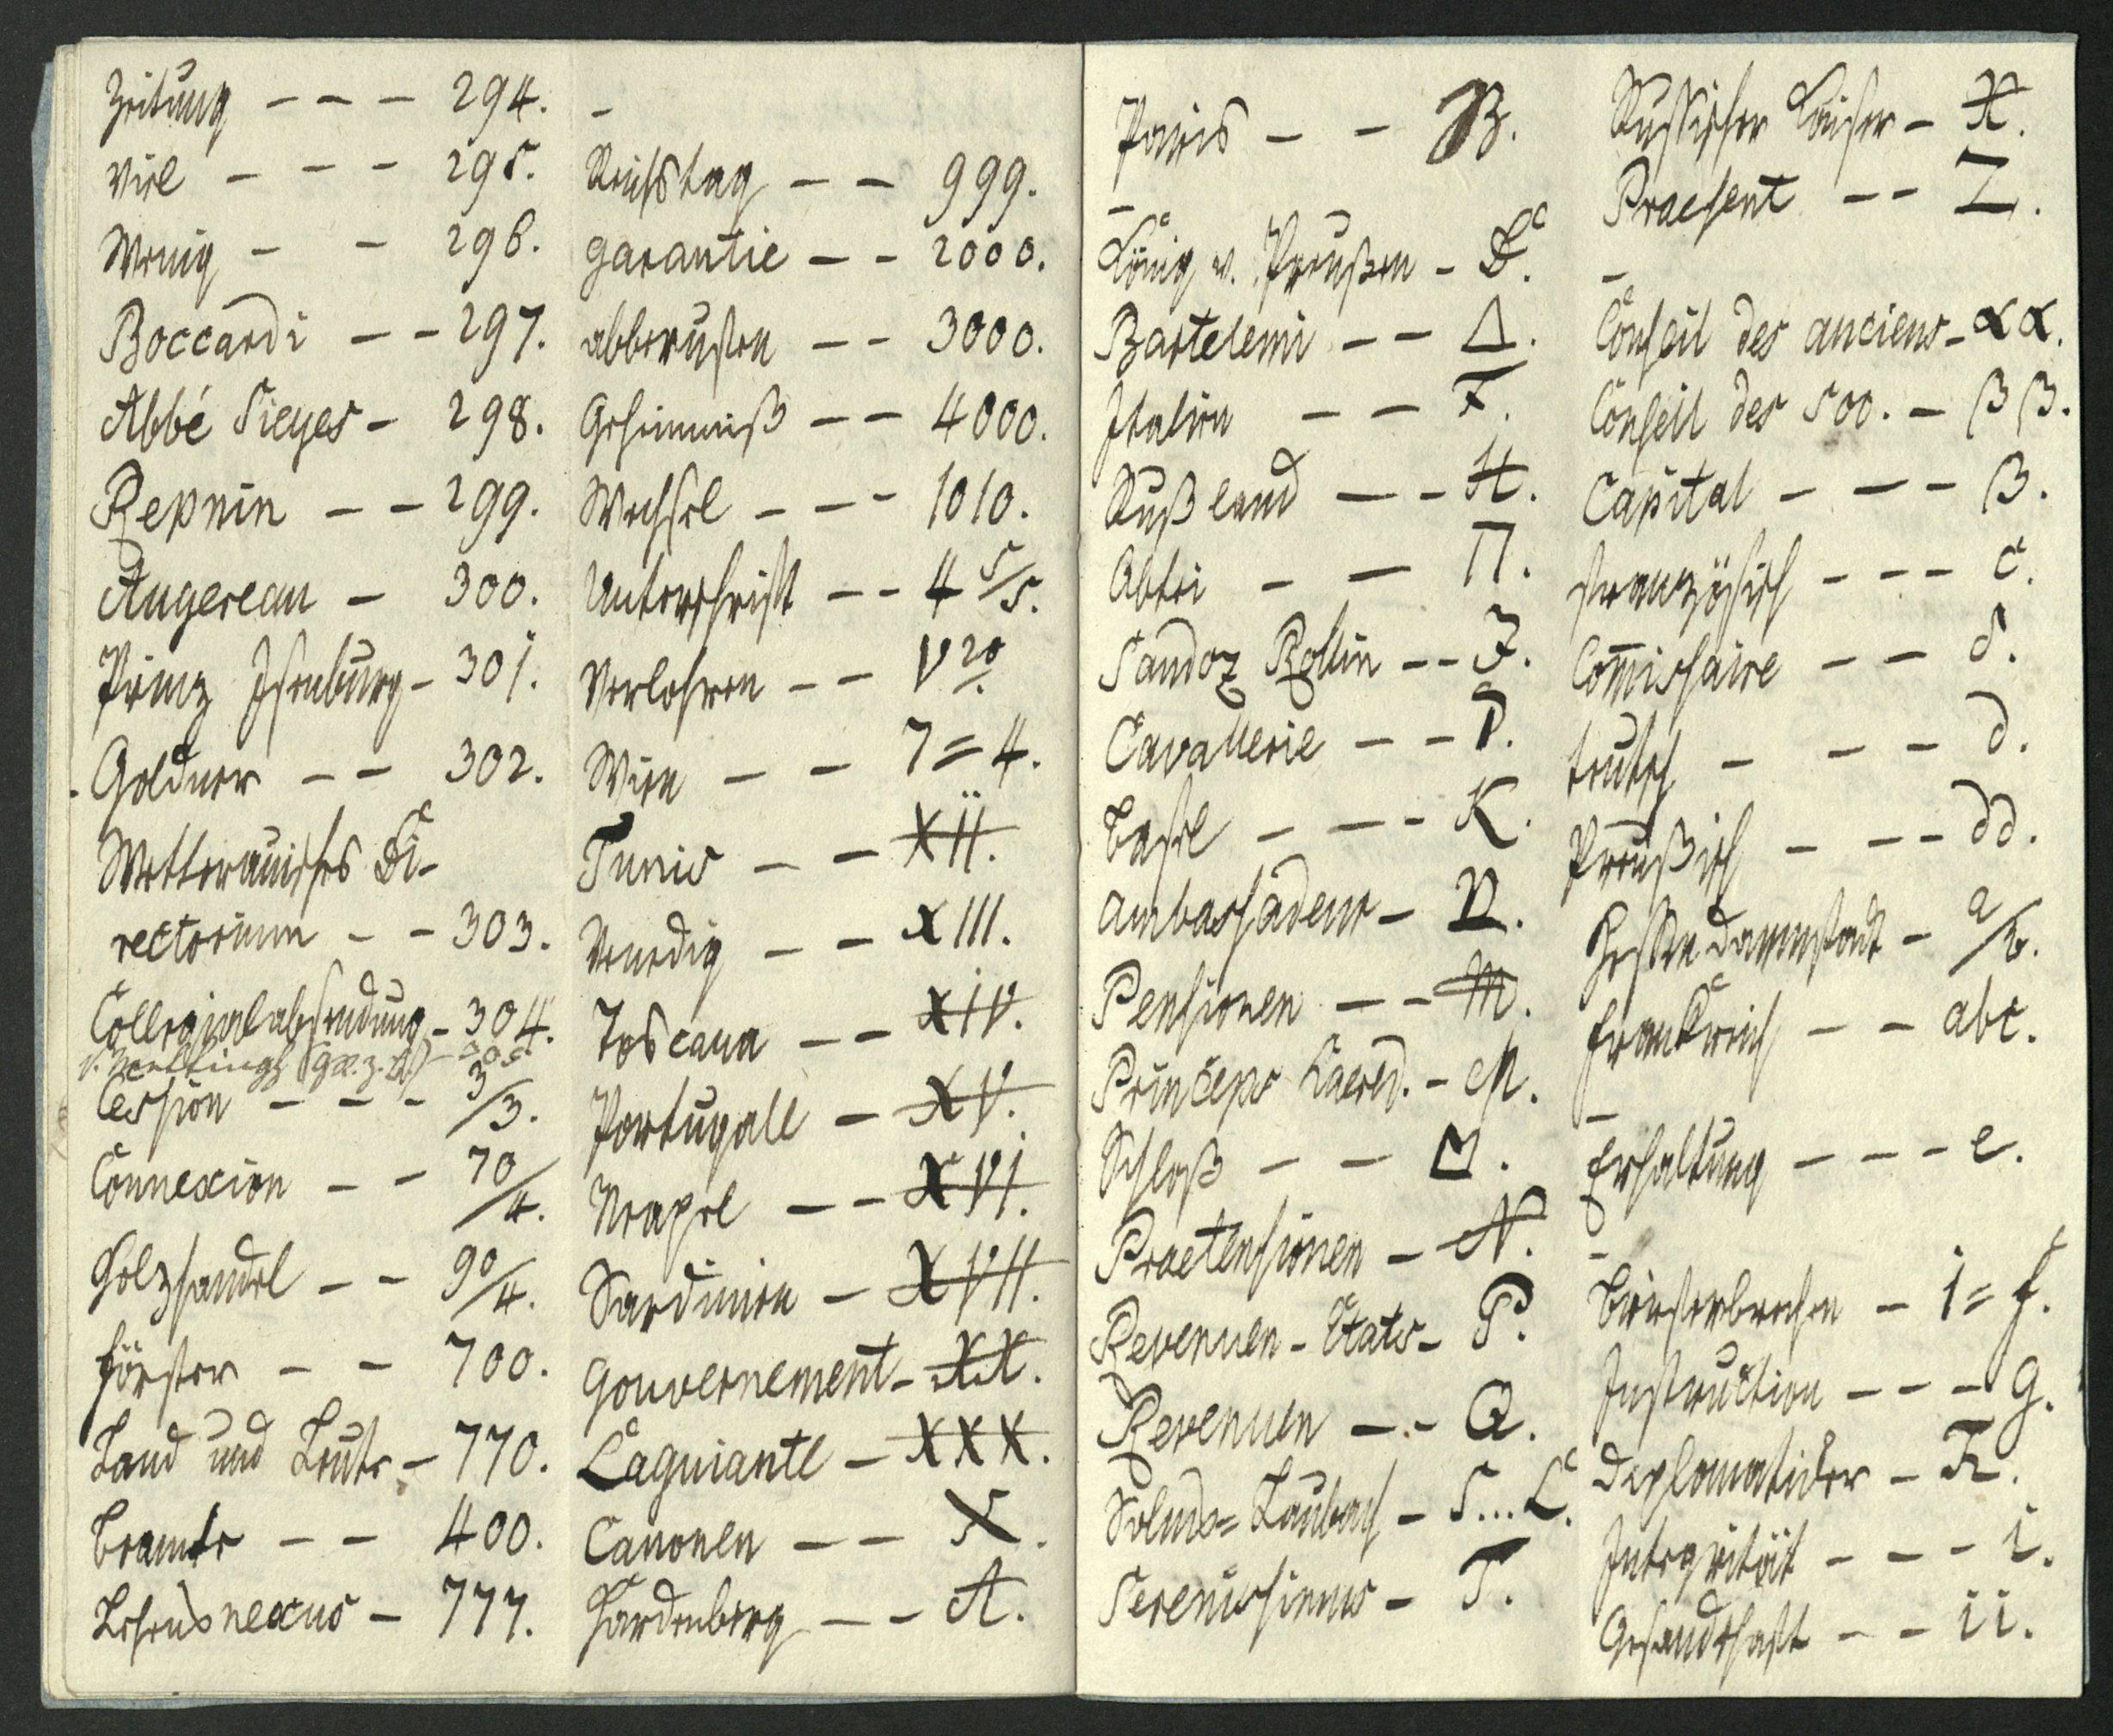 Zeitung - - - 294.
Viel - - - 295.
Wenig - - 296.
Boccardi - - 297.
Abbé Sieyes - 298.
Repnin - - 299.
Augereau - 300.
Prinz Isenburg - 301.
Goldner - - 302.
Wetterauisches Di-
rectorium - - 303.
Collegialabsendung - 304.
305.
Cession - - - 3/3.
Connexion - - 70/4.
Holzhandel - - 90/4.
Förster - - 700.
Land und Leute - 770.
Beamte - - 400.
Lehensnexus - 777.
-
Reichstag - - 999.
garantie - - 2000.
abberuffen - - 3000.
Geheimniß - - 4000.
Wechsel - - - 1010.
Unterschrift - - 4 5/5.
Verlohren - - V 20.
Wien - - 7=4.
Tunis - - XII.
Venedig - - XIII.
Toscana - - XIV.
Portugall - XV.
Neapel - - XVI.
Sardinien - XVII.
Gouvernement - XX.
Laquiante - XXX.
Canonen - - X.
Hardenberg - - A.
Paris - - B.
-
König v. Preußen - D.
Bartelemi - - Δ.
Italien - - F.
Rußland - - H.
Abtei - - Π.
Sandoz Rollin - - J.
Cavallerie - - P.
Basel - - - K.
Ambassadeur - N.
Pensionen - - M.
Princeps Haered. - M.
Schloß - - M.
Praetensionen - N.
Revenuen-Etats - P.
Revenuen - - Q.
Solms=Laubach - S....L.
Serenissimus - T.
Russischer Kaiser - X.
Praesent - - Z.
-
Conseil des anciens - αα.
Conseil des 500. - ββ.
Capital - - - β.
französisch - - - c.
Commissaire - - δ.
teutsch - - - d.
Preußisch - - - dd.
Hessendarmstadt - a/b.
Frankreich - - abc.
-
Erhaltung - - - e.
-
Bürsterbrechen - i=f.
Instruction - - - g.
Diplomatiker - h.
Integrität - - - i.
Gesandschaft - - ii.